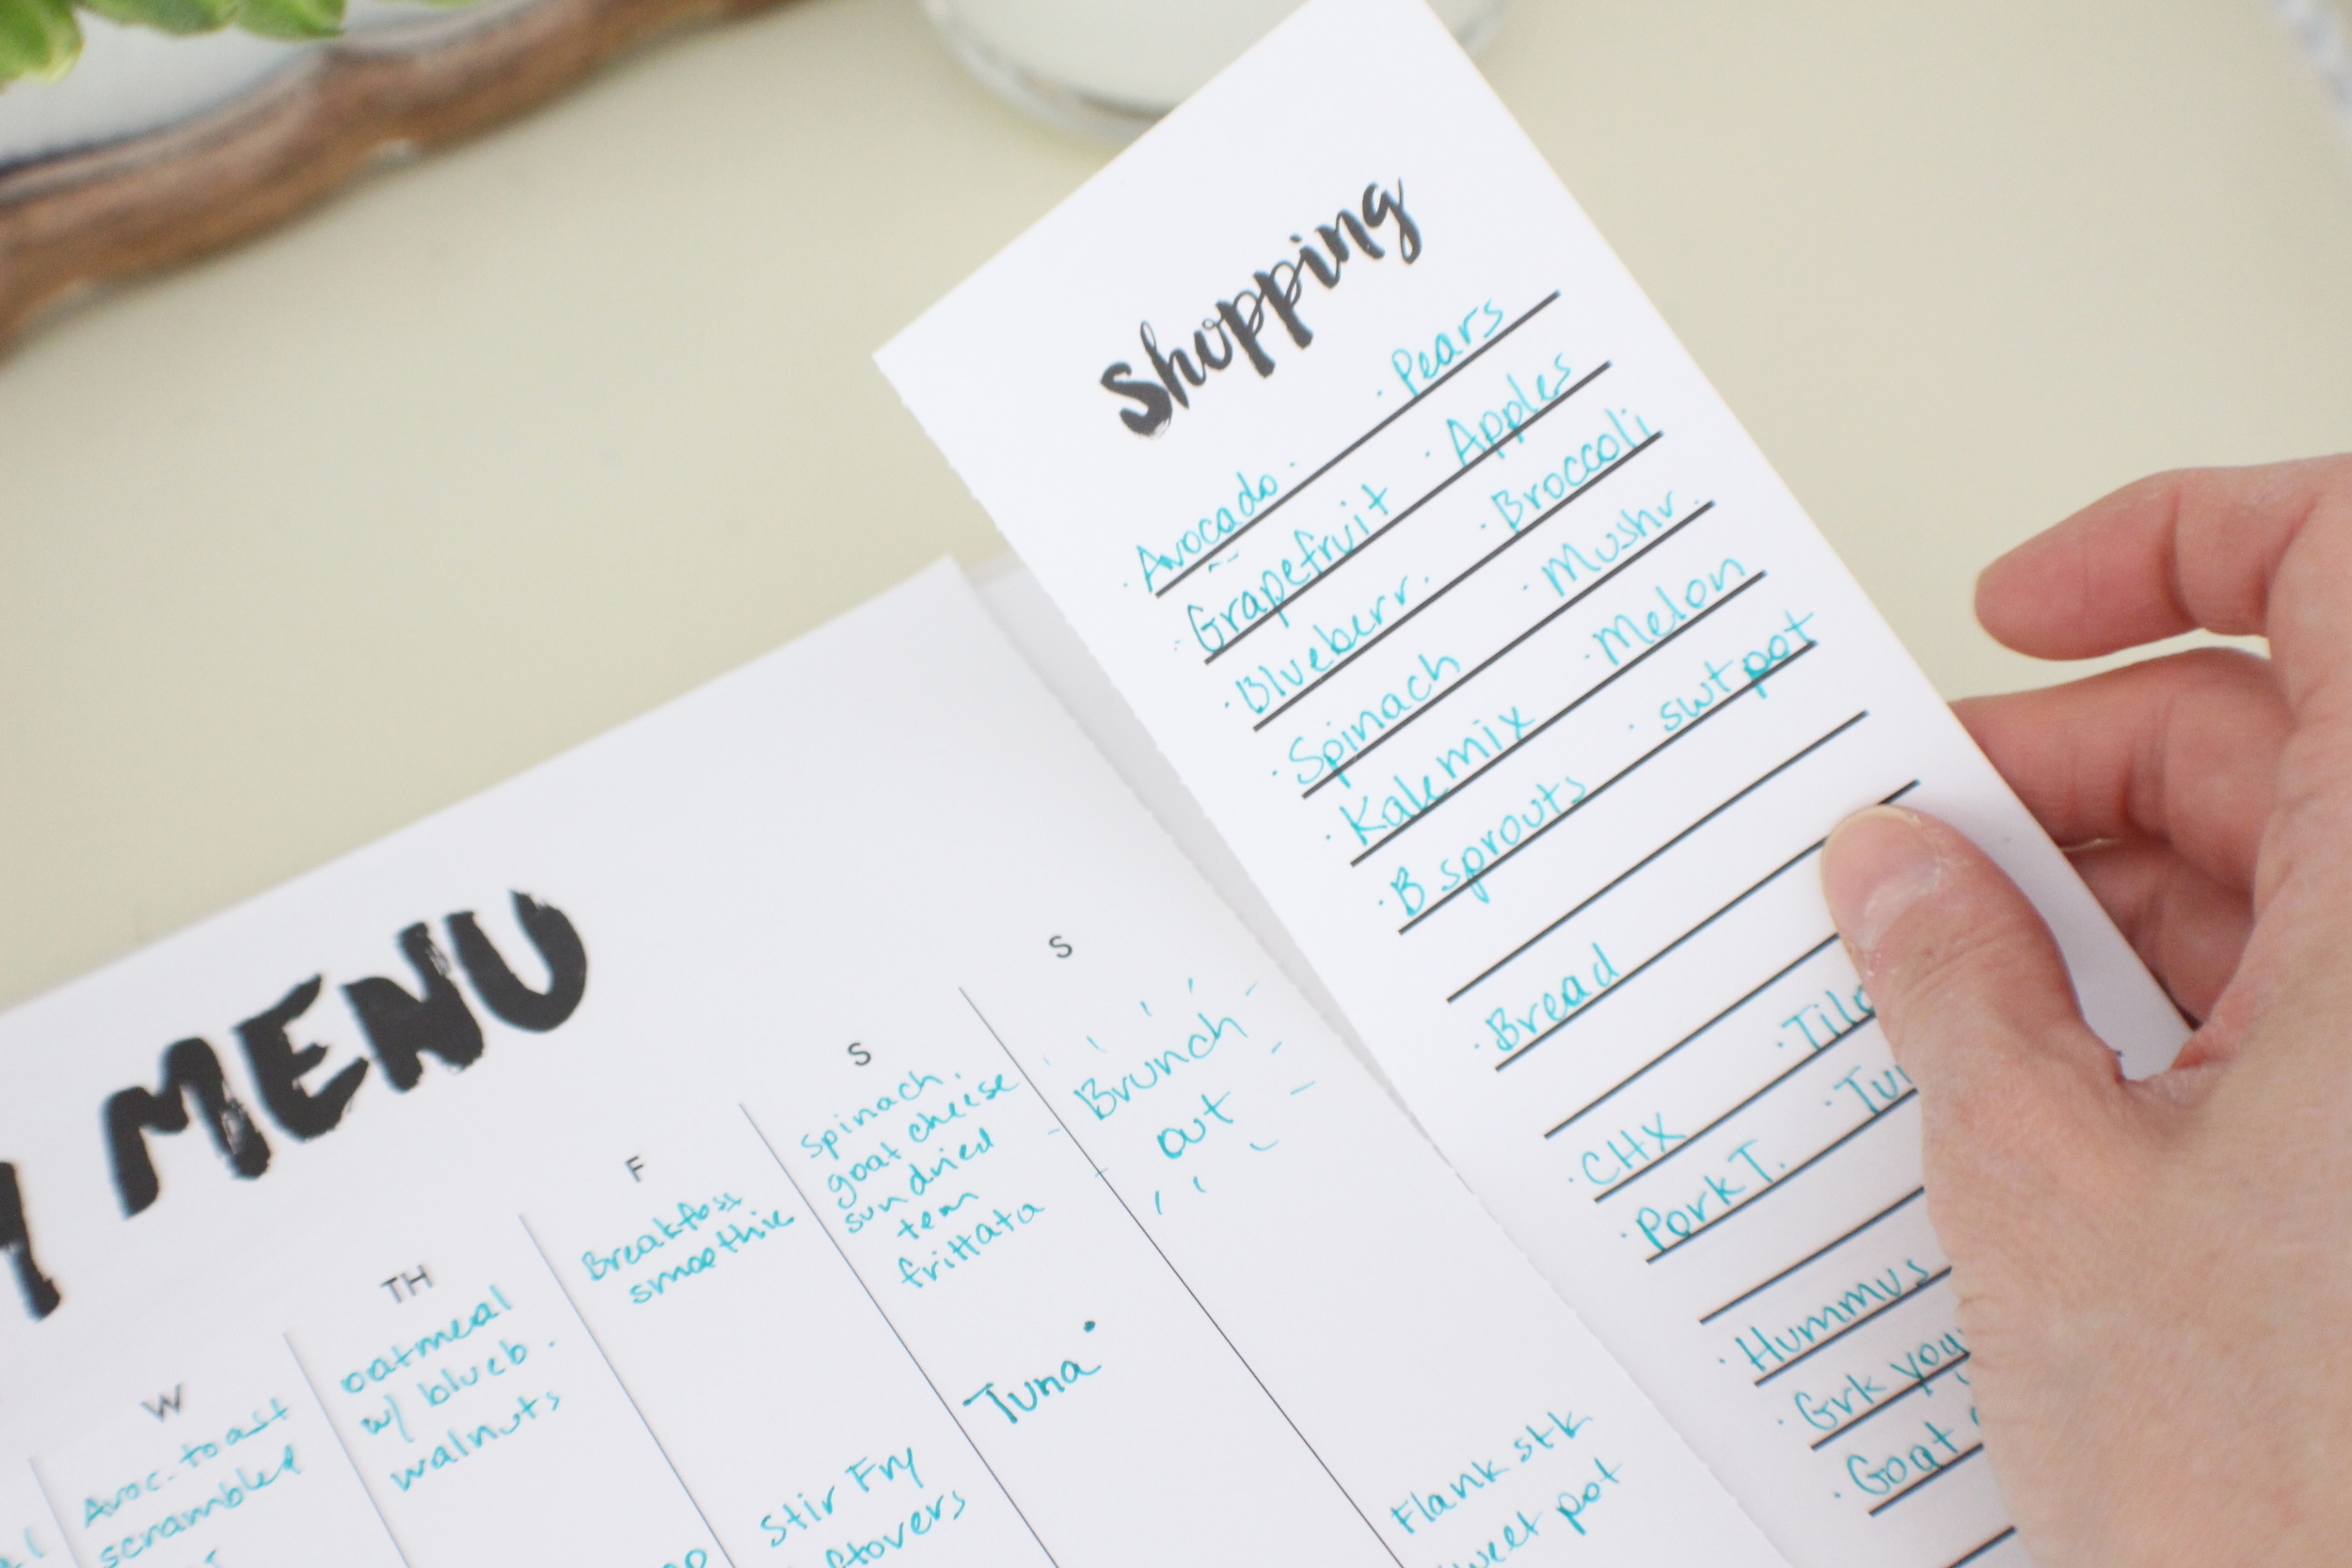 Shopping
· Avocado · · Pears
· Grapefruit · Apples
· Blueberr. · Broccoli
· Spinach · Mushr.
· Kale mix · Melon
· B sprouts · swt pot
· Bread
· CHX
· Pork T.
· Hummus
· Grk
· Goat
MENU
W
Avoc. toast
scrambled
TH
oatmeal
w/ blueb.
walnuts
F
smoothie
S
Spinach,
goat cheese
sun dried
tom
frittata
Tuna
Stir Fry
S
Brunch
out
Flank stk
pot